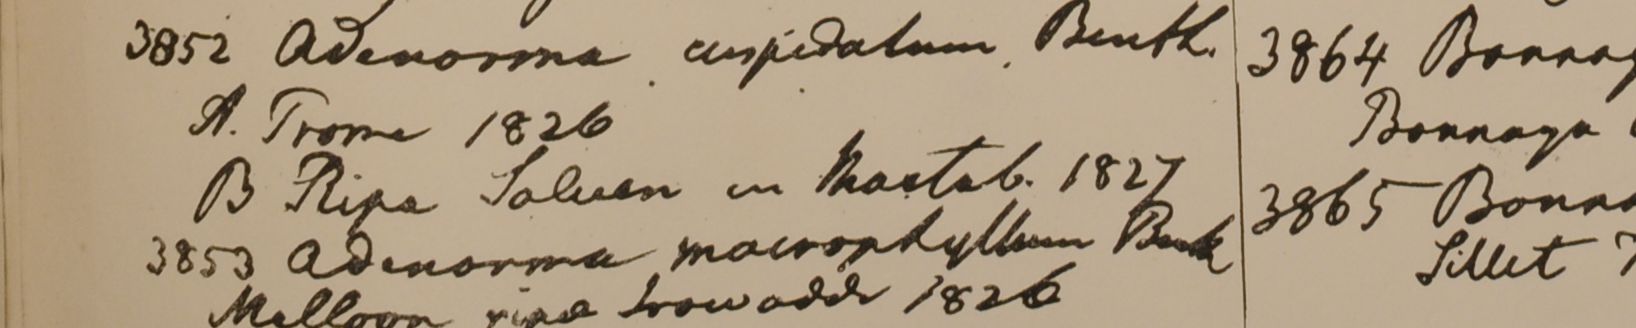 3852 Adenosma cuspidatum, Benth.
A. Prome 1826
B Ripa Saluen in Martab. 1827
3853 Adenosma macrophyllum Benth
Melloon ripa Irawaddi 1826
3864 Bonnay
Bonnaya
3865 Bonna
Sillet